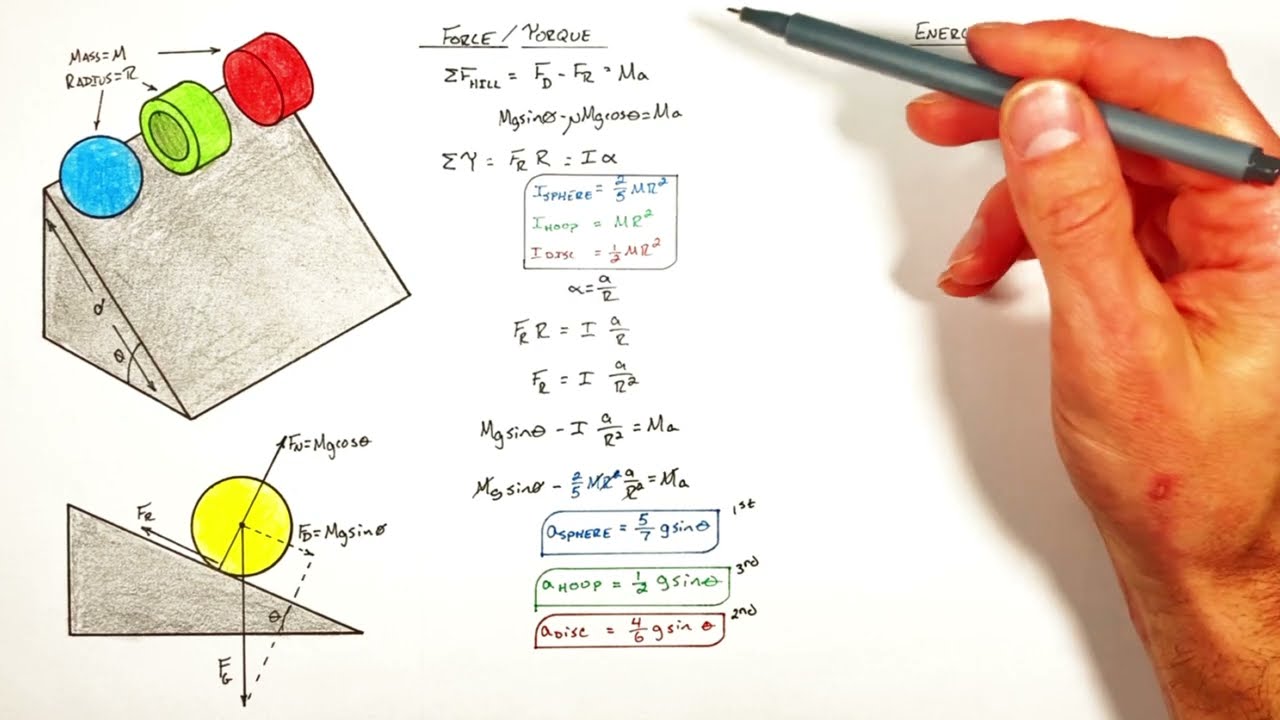 MASS=M
RADIUS=R
d
θ
FN=Mgcosθ
FR
FD=Mgsinθ
θ
FG
FORCE/TORQUE
ΣFHILL = FD - FR = Ma
Mgsinθ-μMgcosθ=Ma
Στ = FR R = I α
ISPHERE = 2/5 MR²
IHOOP = MR²
IDISC = 1/2 MR²
α = a/R
FR R = I a/R
FR = I a/R²
Mgsinθ - I a/R² = Ma
Mgsinθ - 2/5 MR² a/R² = Ma
aSPHERE = 5/7 gsinθ 1st
aHOOP = 1/2 gsinθ 3rd
aDISC = 4/6 gsinθ 2nd